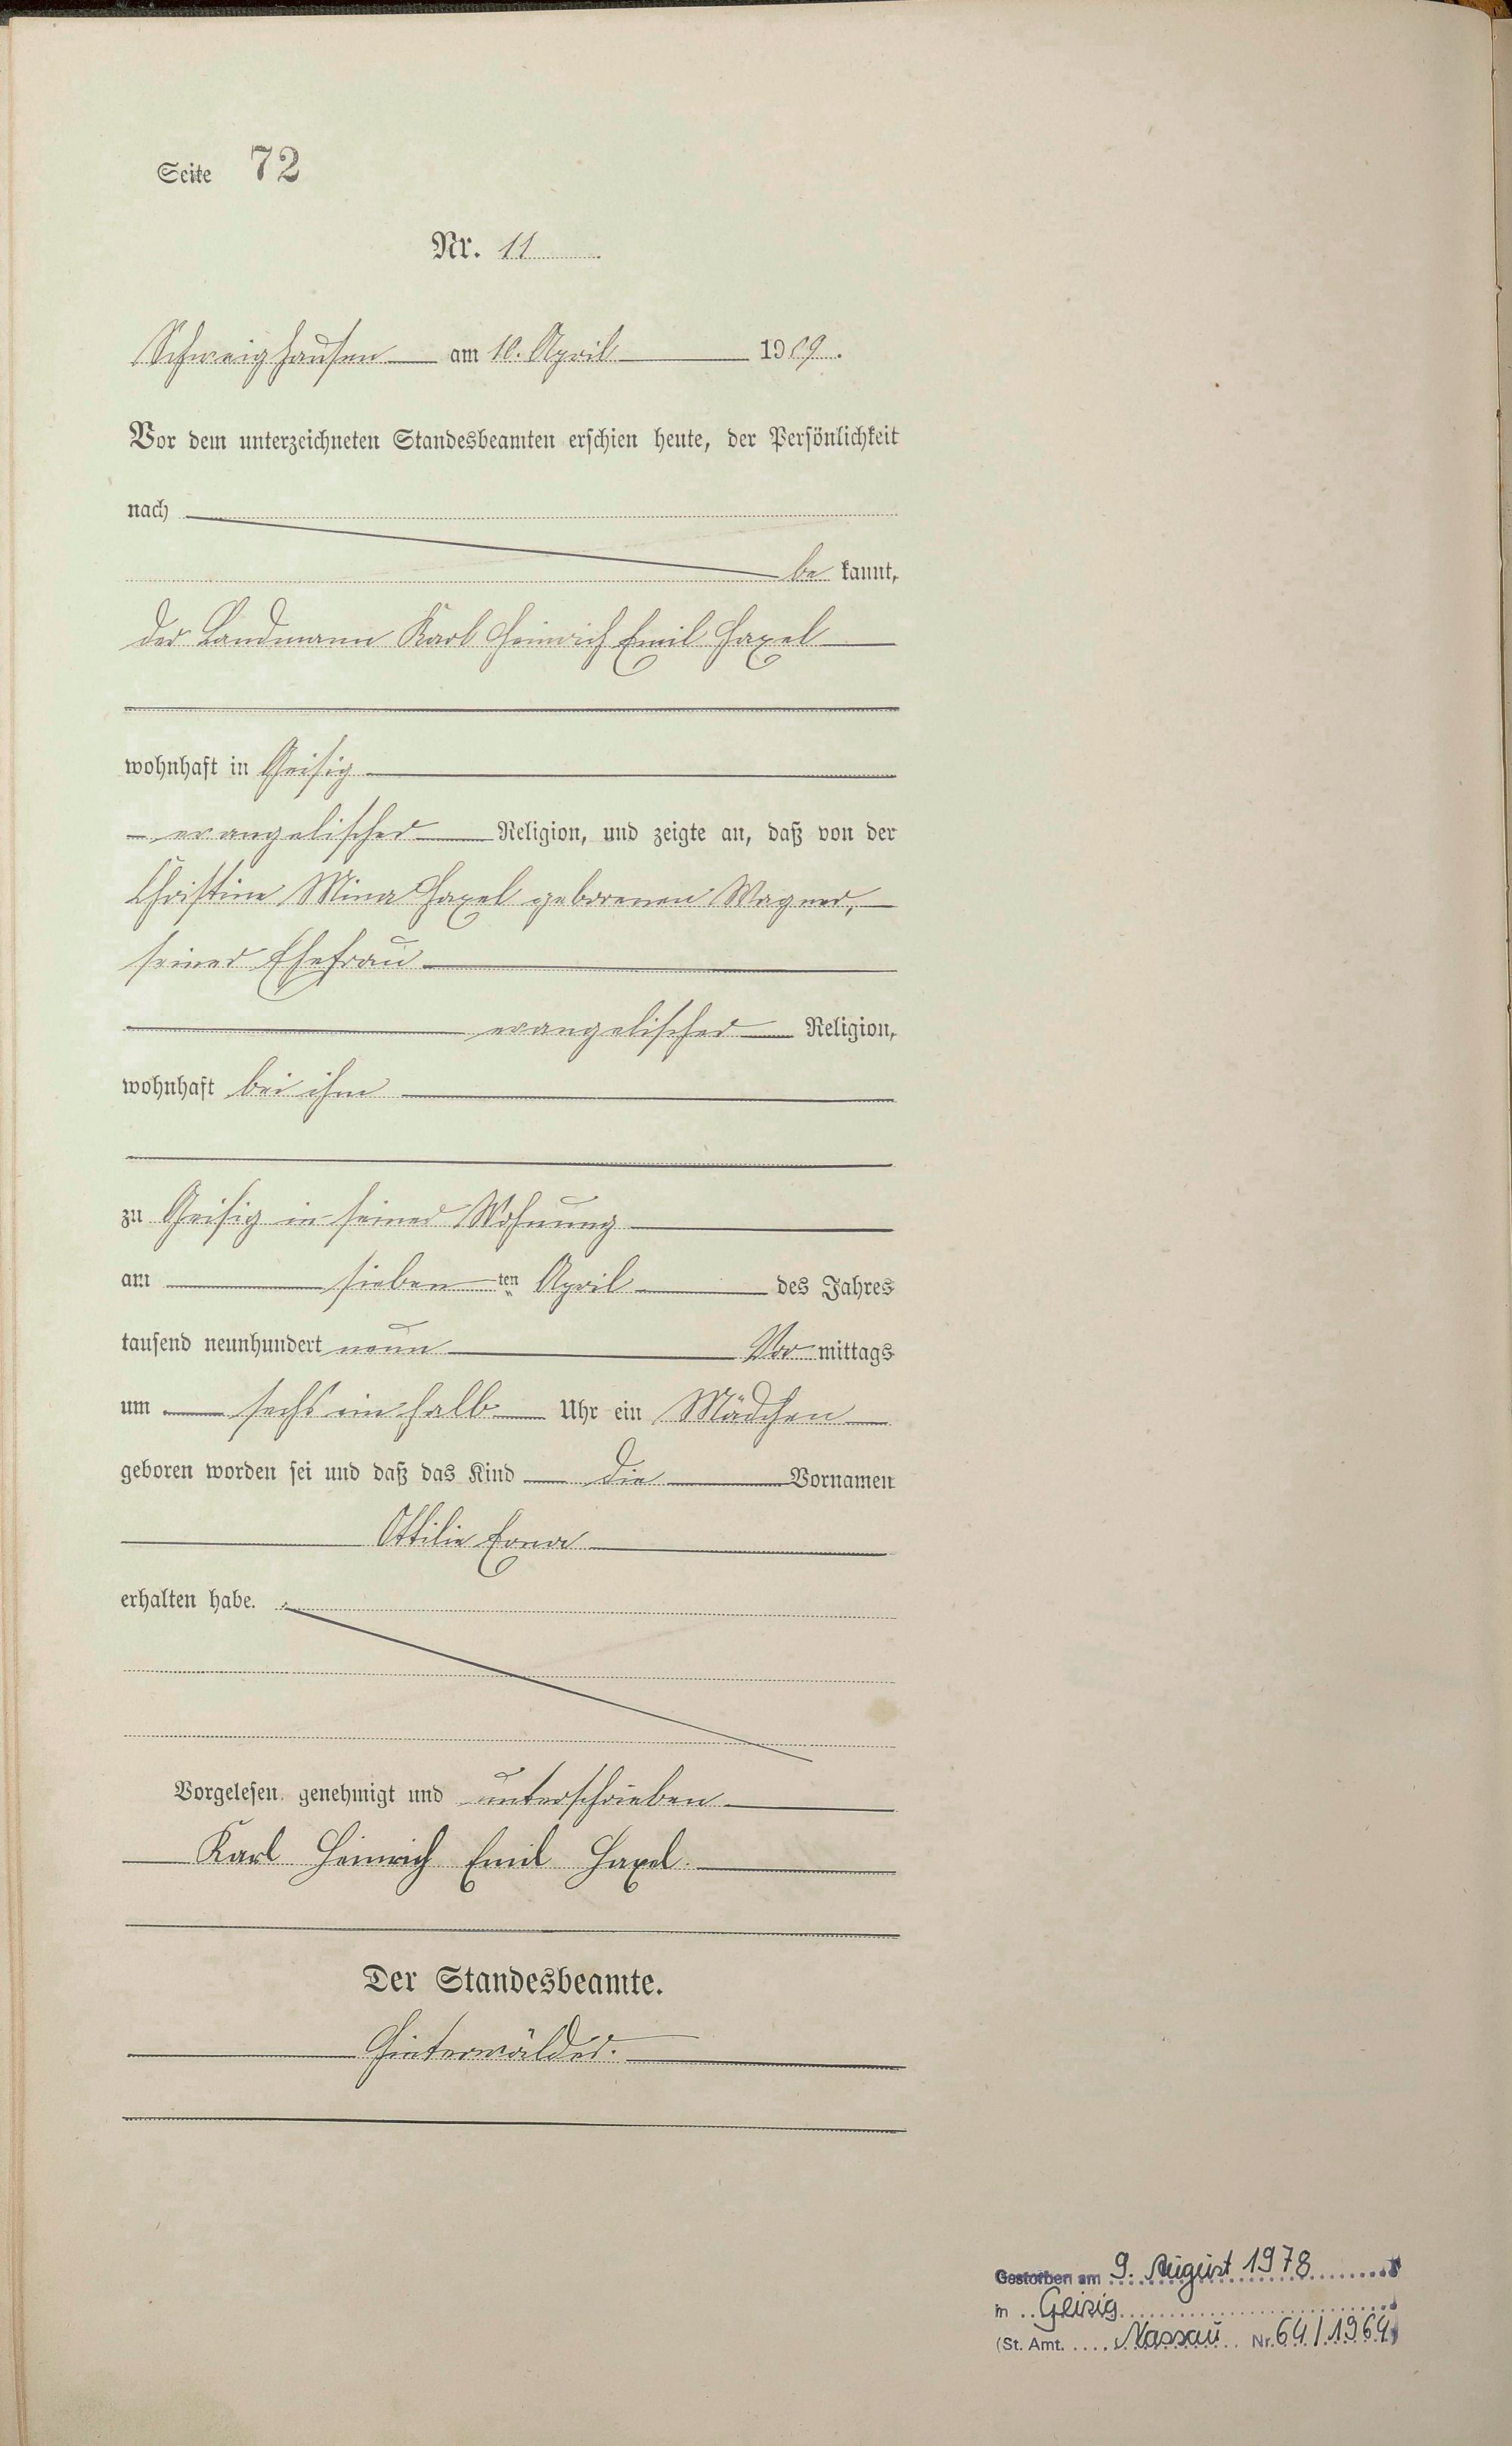 Seite 72
Nr. 11
Schweighausen am 10. April 1909.
Vor dem unterzeichneten Standesbeamten erschien heute, der Persönlichkeit
nach
be kannt,
der Landmann Karl Heinrich Emil Haxel
wohnhaft in Geisig
evangelischer Religion, und zeigte an, daß von der
Christine Mina Haxel geborenen Wagner,
seiner Ehefrau
evangelischer Religion,
wohnhaft bei ihm
zu Geisig in seiner Wohnung
am sieben ten April des Jahres
tausend neunhundert neun Vor mittags
um sechs ein halb Uhr ein Mädchen
geboren worden sei und daß das Kind die Vornamen
Ottilie Erna
erhalten habe.
Vorgelesen, genehmigt und unterschrieben
Karl Heinrich Emil Haxel.
Der Standesbeamte.
Hinterwälder.
Gestorben am 9. August 1978
in Geisig
(St. Amt. Nassau Nr. 64/1964)